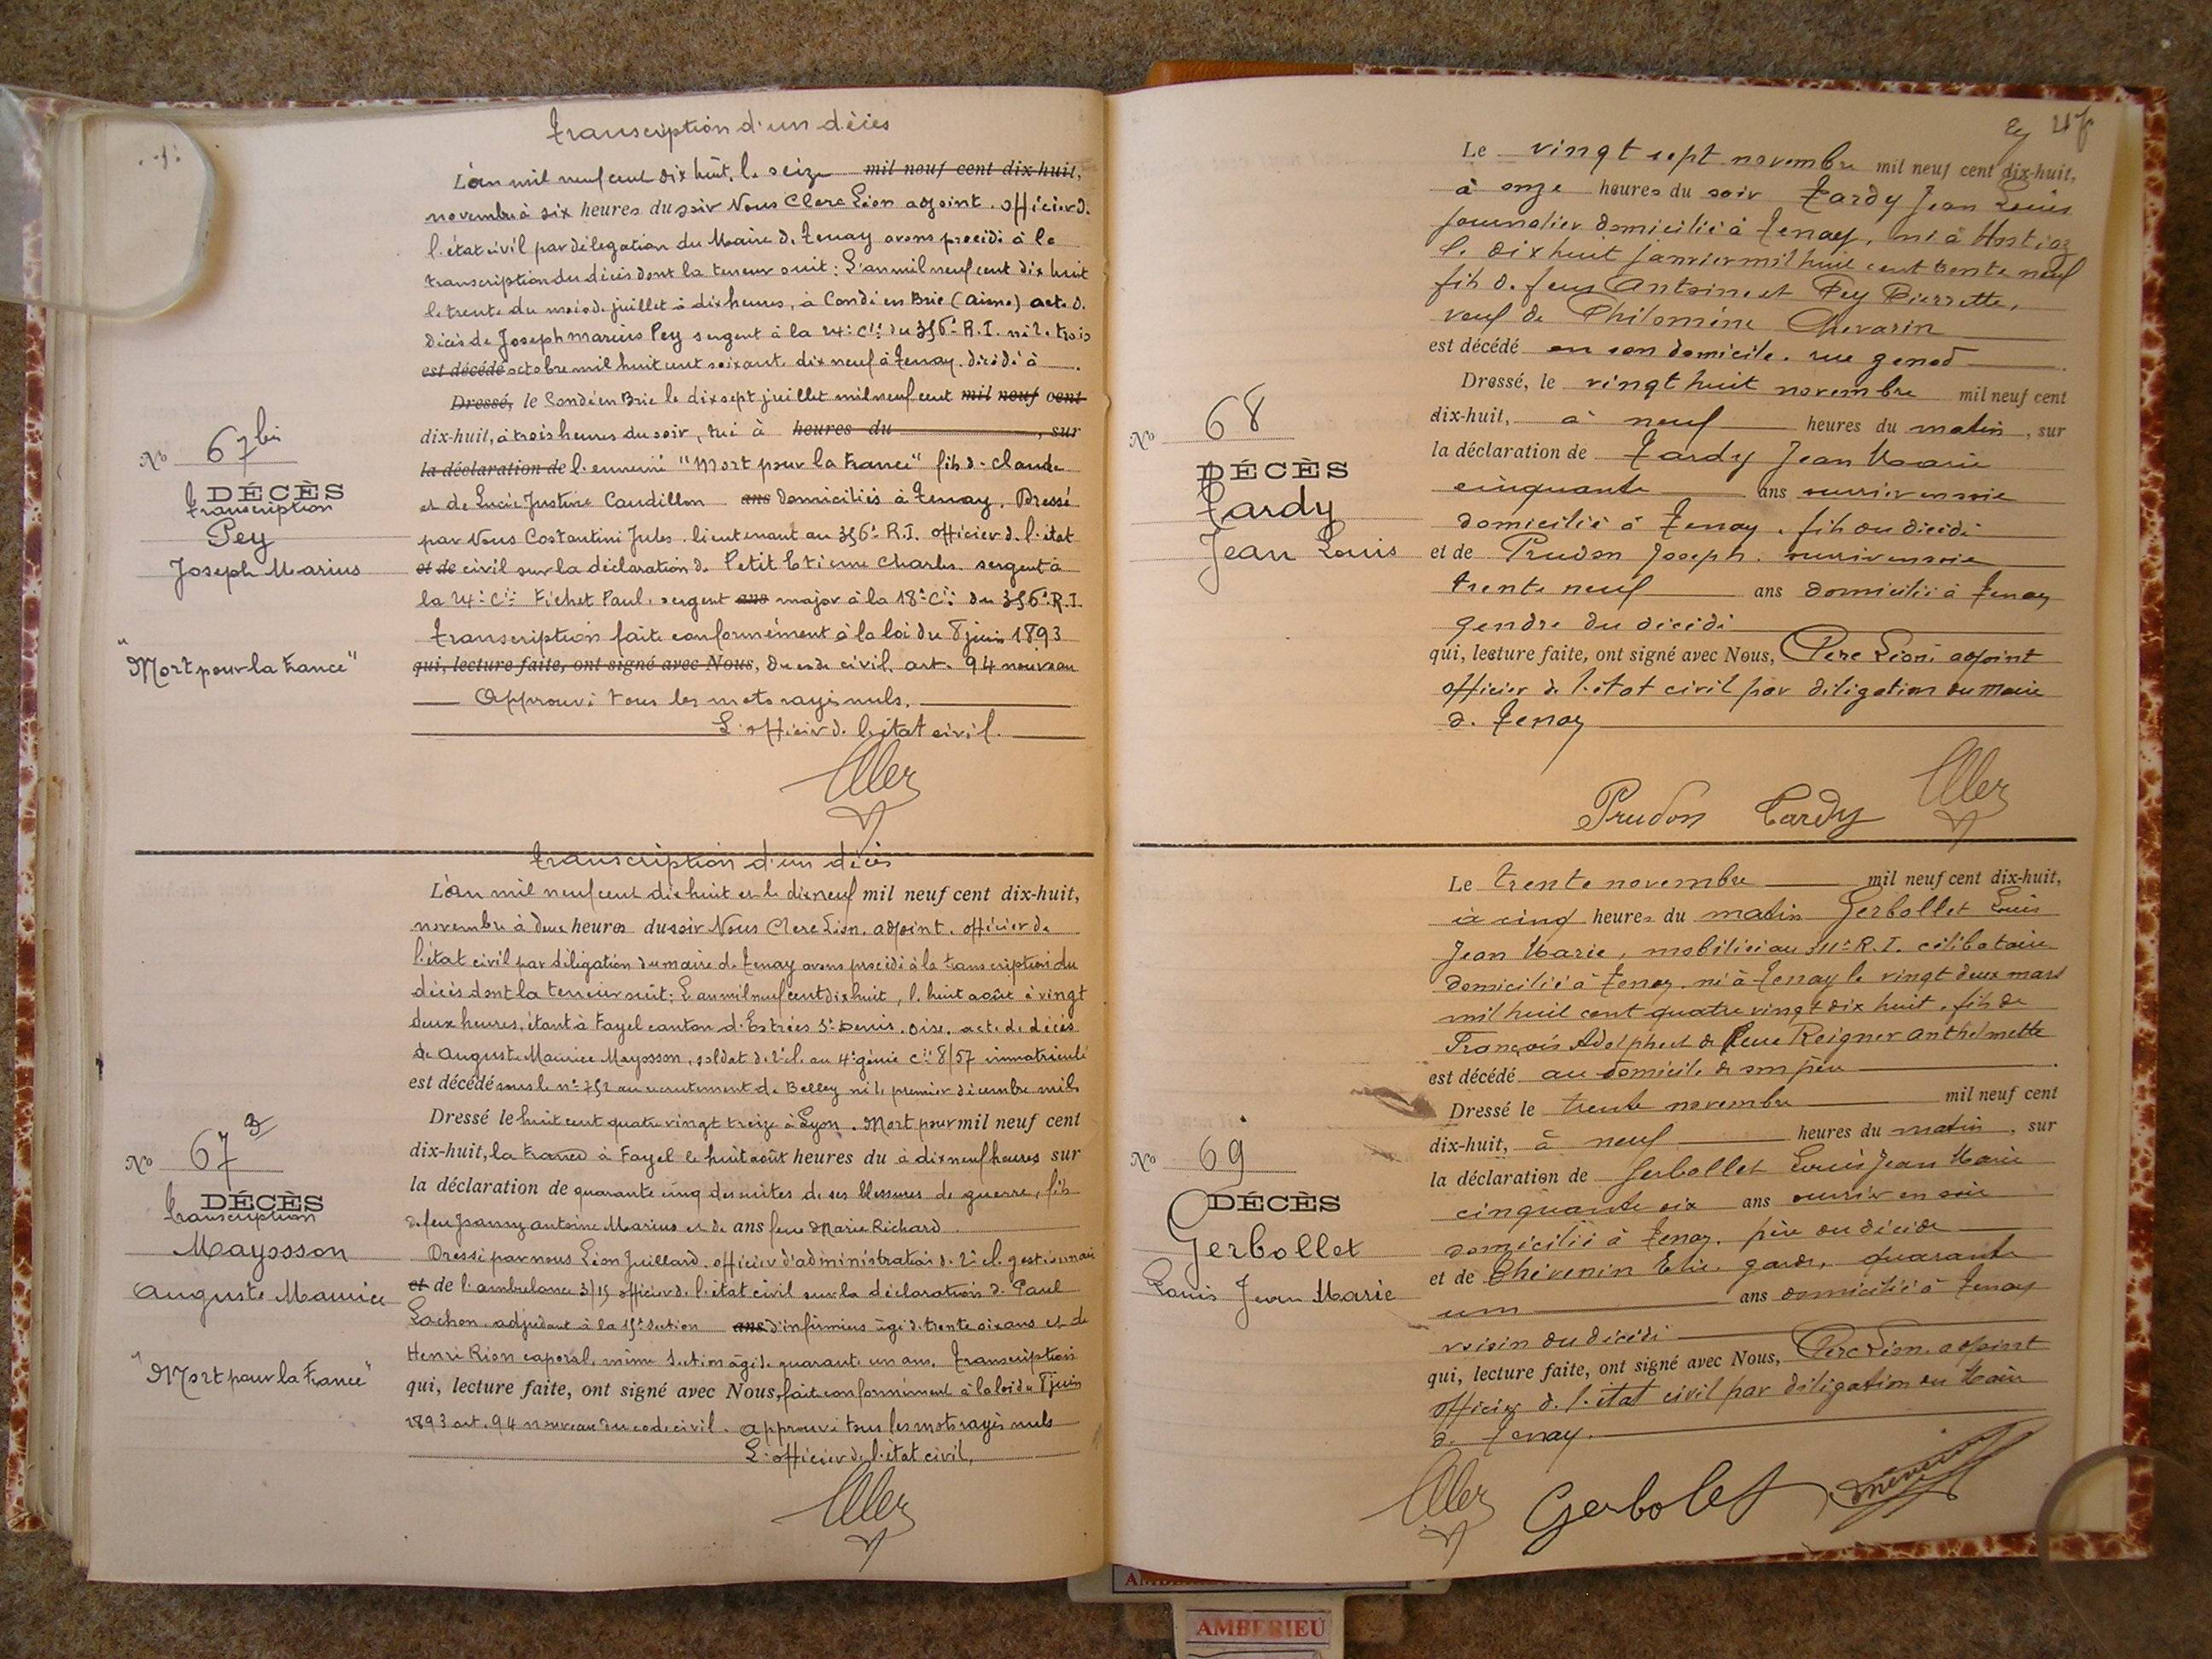 transcription d'un décès
L'an mil neuf cent dix huit, le seize mil neuf cent dix-huit,
novembre à six heures du soir Nous Clerc Léon adjoint. officier d.
l'état civil par délégation du Maire de Tenay avons procédé à la
transcription du décès dont la teneur suit: L'an mil neuf cent dix huit
le trente du mois de juillet à dix heures, à Condé en Brie (Aisne) acte d.
décès de Joseph Marius Pey sergent à la 24e Cie du 356e R.I. né le trois
est décédé octobre mil huit cent soixante dix neuf à Tenay. décédé à
Dressé, le Condé en Brie le dix sept juillet mil neuf cent mil neuf cent
dix-huit, à trois heures du soir, tué à heures du , sur
la déclaration de l'ennemi "Mort pour la France" fils d. Claude
et de Lucie Justine Caudillon ans domiciliés à Tenay. Dressé
par Nous Costantini Jules. lieutenant au 356e R.I. officier d. l'état
et de civil sur la déclaration d. Petit Etienne Charles sergent à
la 24e Cie Fichet Paul, sergent ans major à la 18e Cie du 356e R.I.
transcription faite conformément à la loi du 8 juin 1893
qui, lecture faite, ont signé avec Nous, du code civil, art. 94 nouveau
Approuvé tous les mots rayés nuls.
L'officier d. l'état civil.
No 67 bis
DÉCÈS
transcription
Pey
Joseph Marius
"Mort pour la France"
transcription d'un décès
L'an mil neuf cent dix huit et le dix neuf mil neuf cent dix-huit,
novembre à deux heures du soir Nous Clerc Léon. adjoint. officier de
l'état civil par délégation du maire d. Tenay avons procédé à la transcription du
décès dont la teneur suit: L'an mil neuf cent dix huit, l. huit août à vingt
deux heures, étant à Fayel canton d'Estrées St Denis. Oise. acte de décès
de Auguste Maurice Mayosson, soldat d. 2e cl. au 4e génie Cie 8/57 immatriculé
est décédé sous le no 752 au recrutement de Belley né le premier décembre mil
Dressé le huit cent quatre vingt treize à Lyon. Mort pour mil neuf cent
dix-huit, la France à Fayel le huit août heures du à dix neuf heures sur
la déclaration de quarante cinq des suites de ses blessures de guerre, fils
de feu Joanny Antoine Marius et de ans feue Marie Richard
Dressé par nous Léon Juillard, officier d'administration d. 2e cl. gestionnaire
et de l'ambulance 3/15 officier d. l'état civil sur la déclaration d. Paul
Lachon. adjudant à la 15e section ans d'infirmiers âgé d. trente six ans et de
Henri Rion caporal, même section âgé de quarante un ans. transcription
qui, lecture faite, ont signé avec Nous, faite conformément à la loi du 8 juin
1893 art. 94 nouveau du code civil. approuvé tous les mots rayés nuls
L'officier de l'état civil,
No 67 3
DÉCÈS
transcription
Mayosson
Auguste Maurice
"Mort pour la France"
Le vingt sept novembre mil neuf cent dix-huit,
à onze heures du soir Tardy Jean Louis
journalier domicilié à Tenay, né à Hostiaz
l. dix huit janvier mil huit cent trente neuf
fils d. feus Antoine et Pey Pierrette,
veuf de Philomène Chevarin
est décédé en son domicile. rue genod
Dressé, le vingt huit novembre mil neuf cent
dix-huit, à neuf heures du matin, sur
la déclaration de Tardy Jean Marie
cinquante ans ouvrier en soie
domicilié à Tenay. fils du décédé
et de Prudon Joseph. ouvrier en soie
trente neuf ans domicilié à Tenay
gendre du décédé
qui, lecture faite, ont signé avec Nous, Clerc Léon, adjoint
officier de l'état civil par délégation du Maire
d. Tenay
Prudon Tardy
No 68
DÉCÈS
Tardy
Jean Louis
Le trente novembre mil neuf cent dix-huit,
à cinq heures du matin Gerbollet Louis
Jean Marie, mobilisé au R.I. célibataire
domicilié à Tenay. né à Tenay le vingt deux mars
mil huit cent quatre vingt dix huit, fils de
François Adolphe et de feue Reigner Anthelmette
est décédé au domicile de son père
Dressé le trente novembre mil neuf cent
dix-huit, à neuf heures du matin, sur
la déclaration de Gerbollet Louis Jean Marie
cinquante six ans ouvrier en soie
domicilié à Tenay. père du décédé
et de Chévenin Elie. garde, quarante
um ans domicilié à Tenay
voisin du décédé
qui, lecture faite, ont signé avec Nous, Clerc Léon. adjoint
officier d. l'état civil par délégation du Maire
d. Tenay.
Gerbolet
No 69
DÉCÈS
Gerbollet
Louis Jean Marie
AMBERIEU